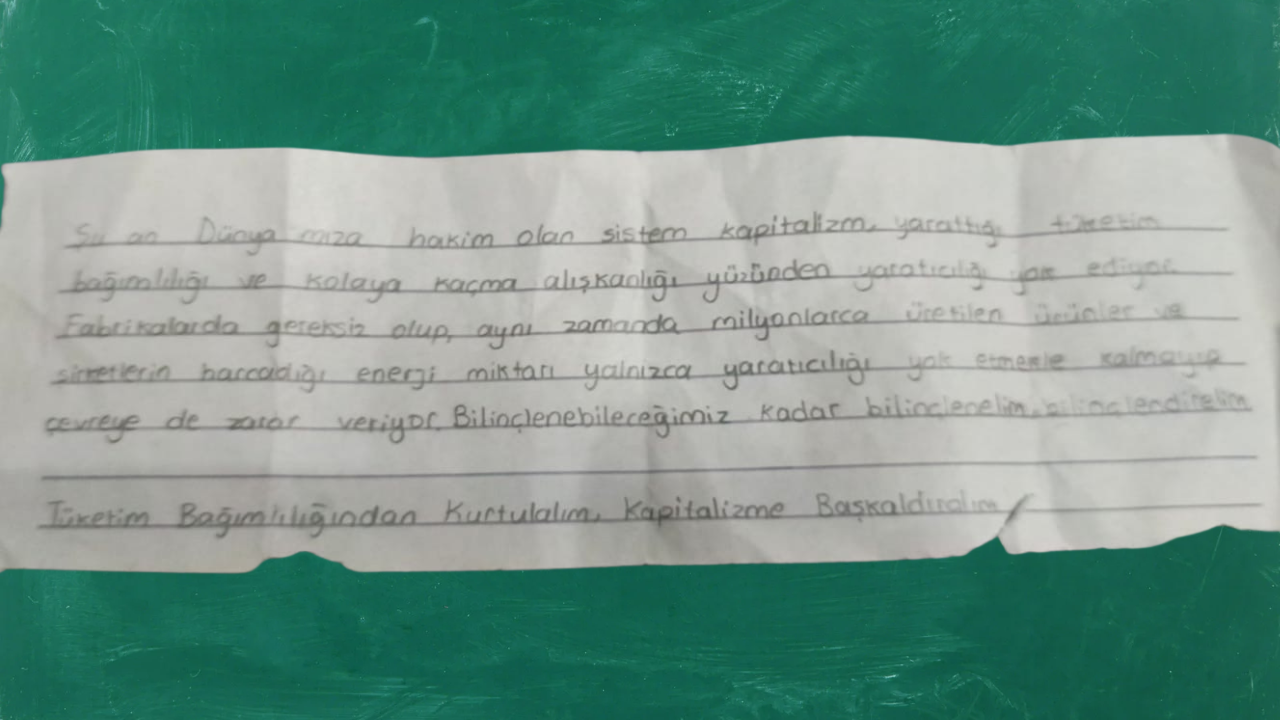 Şu an Dünya mıza hakim olan sistem kapitalizm, yarattığı tüketim
bağımlılığı ve kolaya kaçma alışkanlığı yüzünden yaratıcılığı yok ediyor.
Fabrikalarda gereksiz olup, aynı zamanda milyonlarca üretilen ürünler ve
şirketlerin harcadığı enerji miktarı yalnızca yaratıcılığı yok etmekle kalmayıp
çevreye de zarar veriyor. Bilinçlenebileceğimiz kadar bilinçlenelim, bilinçlendirelim
Tüketim Bağımlılığından Kurtulalım, Kapitalizme Başkaldıralım!